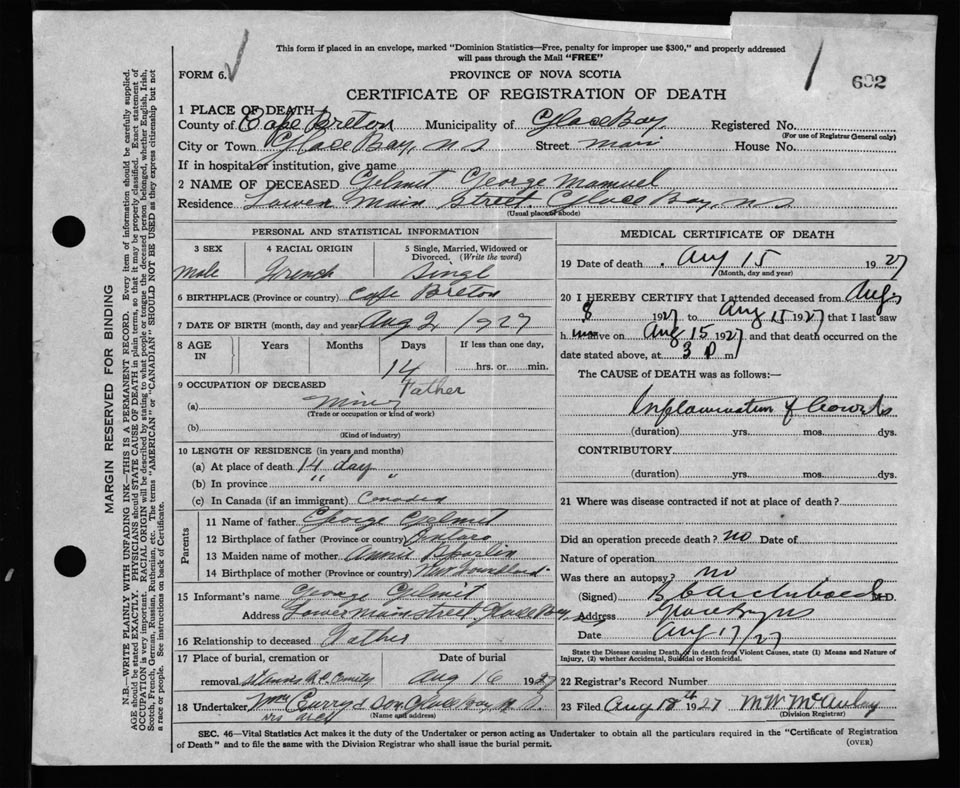 This form if placed in an envelope, marked "Dominion Statistics—Free, penalty for improper use $300," and properly addressed
will pass through the Mail "FREE"
FORM 6.
PROVINCE OF NOVA SCOTIA
CERTIFICATE OF REGISTRATION OF DEATH
1 PLACE OF DEATH—
County of Cape Breton Municipality of Glace Bay. Registered No.
(For use of Registrar General only)
City or Town Glace Bay, N S Street Main House No.
If in hospital or institution, give name
2 NAME OF DECEASED Gelmit George Manuel
Residence Lower Main Street Glace Bay, N S
(Usual place of abode)
PERSONAL AND STATISTICAL INFORMATION
3 SEX 4 RACIAL ORIGIN 5 Single, Married, Widowed or Divorced. (Write the word)
Male French Singl
6 BIRTHPLACE (Province or country) Cape Breton
7 DATE OF BIRTH (month, day and year) Aug 2 1927
8 AGE IN Years Months Days If less than one day,
14 hrs. or min.
9 OCCUPATION OF DECEASED Father
(a) Miner
(Trade or occupation or kind of work)
(b)
(Kind of industry)
10 LENGTH OF RESIDENCE (in years and months)
(a) At place of death 14 day
(b) In province " "
(c) In Canada (if an immigrant)
Parents
11 Name of father George Gelmit
12 Birthplace of father (Province or country)
13 Maiden name of mother Annie
14 Birthplace of mother (Province or country) Newfoundland
15 Informant's name George Gelmit
Address Lower Main street Glace Bay
16 Relationship to deceased Father
17 Place of burial, cremation or removal Date of burial
Aug 16 1927
18 Undertaker Wm Curry & Son Glace Bay, N. S.
(Name and address)
MEDICAL CERTIFICATE OF DEATH
19 Date of death Aug 15 1927
(Month, day and year)
20 I HEREBY CERTIFY that I attended deceased from Aug
8 1927 to Aug 15 1927 that I last saw
h alive on Aug 15 1927, and that death occurred on the
date stated above, at 3 P m
The CAUSE OF DEATH was as follows:—
Inflammation of Bowels
(duration) yrs. mos. dys.
CONTRIBUTORY
(duration) yrs. mos. dys.
21 Where was disease contracted if not at place of death?
Did an operation precede death? no Date of
Nature of operation
Was there an autopsy? no
(Signed) M.D.
Address Glace Bay NS
Date Aug 17/27
State the Disease causing Death, or in death from Violent Causes, state (1) Means and Nature of
Injury, (2) whether Accidental, Suicidal or Homicidal.
22 Registrar's Record Number
23 Filed Aug 18th 1927
(Division Registrar)
SEC. 46—Vital Statistics Act makes it the duty of the Undertaker or person acting as Undertaker to obtain all the particulars required in the "Certificate of Registration
of Death" and to file the same with the Division Registrar who shall issue the burial permit.
(OVER)
MARGIN RESERVED FOR BINDING
N.B.—WRITE PLAINLY WITH UNFADING INK—THIS IS A PERMANENT RECORD. Every item of information should be carefully supplied.
AGE should be stated EXACTLY. PHYSICIANS should STATE CAUSE OF DEATH in plain terms, so that it may be properly classified. Exact statement of
OCCUPATION is very important. RACIAL ORIGIN will be described by stating to what people or tongue the deceased person belonged, whether English, Irish,
Scotch, French, German, Russian, Ruthenian, etc. The terms "AMERICAN" or "CANADIAN" SHOULD NOT BE USED as they express citizenship but not
a race or people. See instructions on back of Certificate.